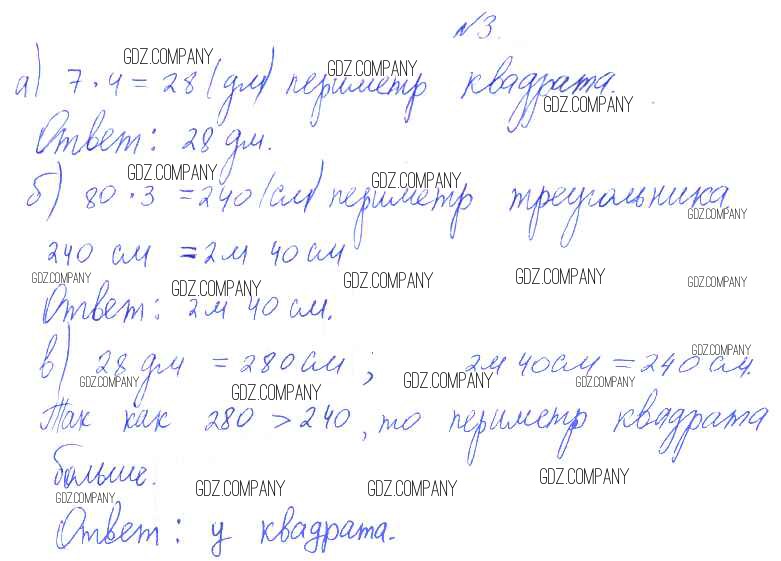 №3.
GDZ.COMPANY GDZ.COMPANY
а) 7·4 = 28 (дм) периметр квадрата.
GDZ.COMPANY
Ответ: 28 дм.
GDZ.COMPANY GDZ.COMPANY
б) 80·3 = 240 (см) периметр треугольника
GDZ.COMPANY
240 см = 2м 40 см
GDZ.COMPANY GDZ.COMPANY GDZ.COMPANY GDZ.COMPANY GDZ.COMPANY
Ответ: 2м 40 см.
GDZ.COMPANY
в) 28 дм = 280 см ; 2м 40см = 240 см.
GDZ.COMPANY GDZ.COMPANY GDZ.COMPANY GDZ.COMPANY
Так как 280 > 240, то периметр квадрата
больше.
GDZ.COMPANY GDZ.COMPANY GDZ.COMPANY GDZ.COMPANY
Ответ: у квадрата.